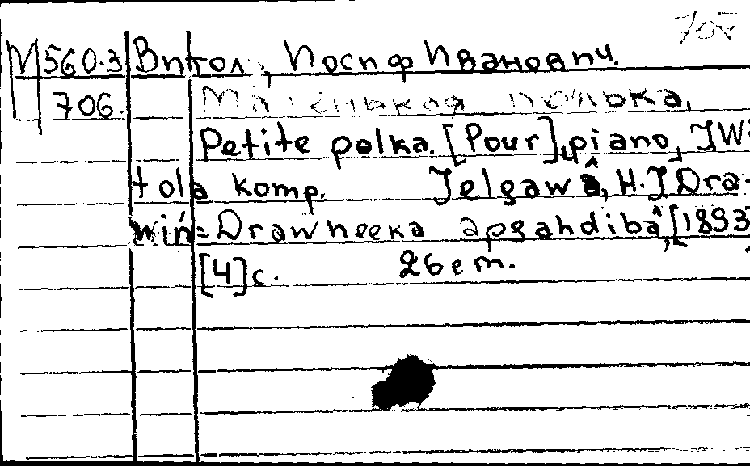 70
М560.3 Витол, Иосиф Иванович.
706. Маленькая полька.
Petite polka. [Pour] piano, JWi
tola komp. Jelgawâ, H.J.Dra-
wiń=Drawneeka apgahdibâ, [1893
[4]с. 26 em.